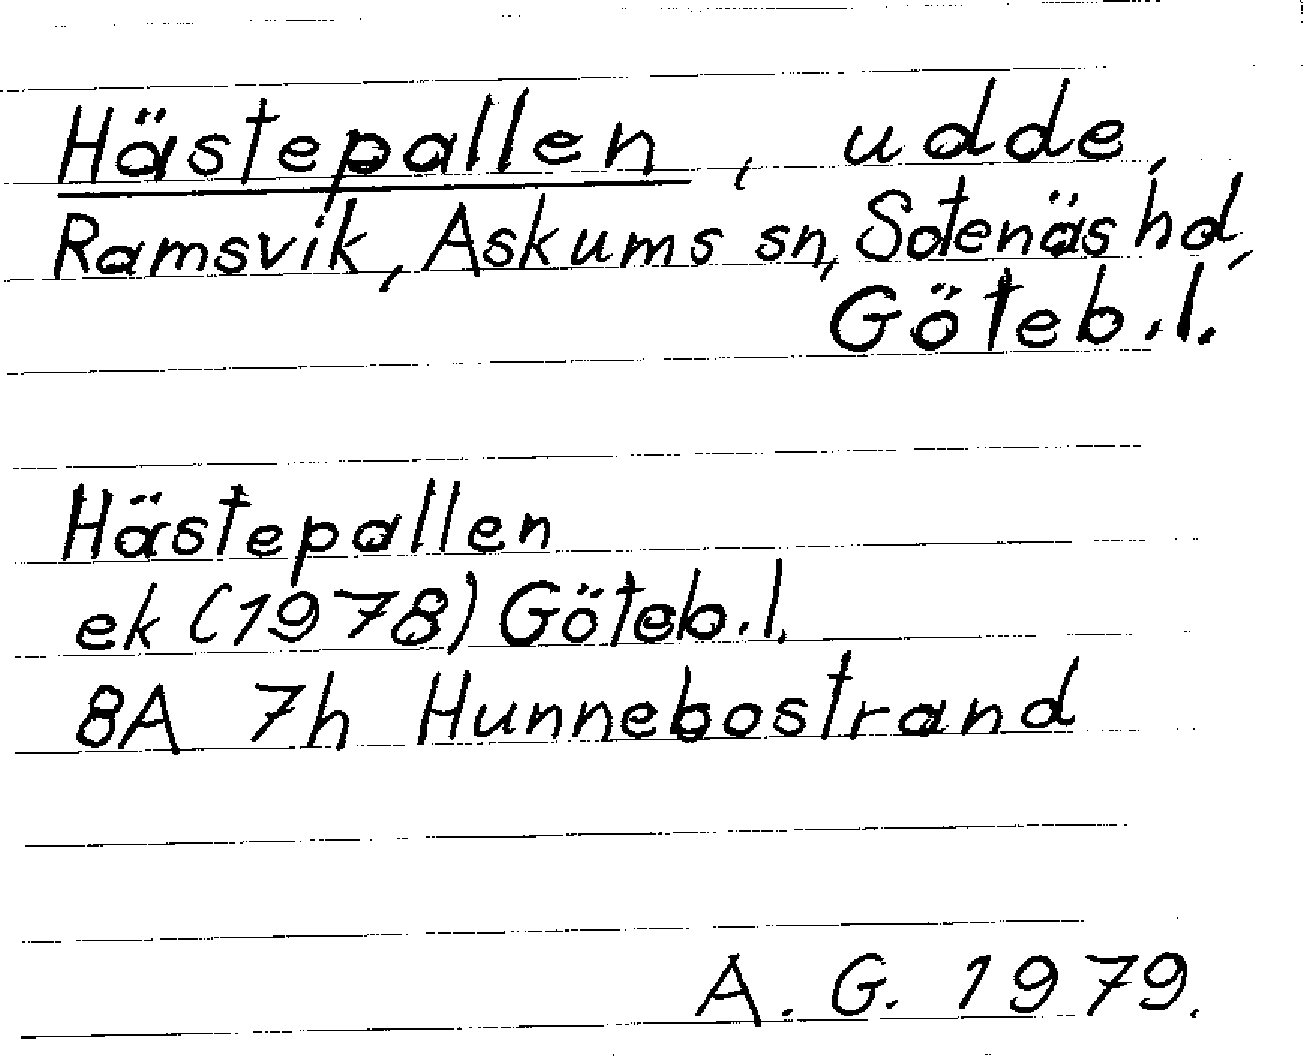 Hästepallen, udde,
Ramsvik, Askums sn, Sotenäs hd,
Göteb.l.
Hästepallen
ek (1978) Göteb.l.
8A 7h Hunnebostrand
A. G. 1979.